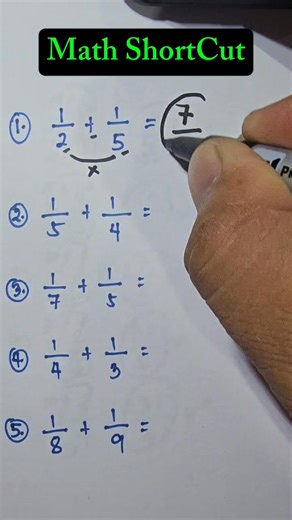 Math ShortCut
1. 1/2 + 1/5 = 7
x
2. 1/5 + 1/4 =
3. 1/7 + 1/5 =
4. 1/4 + 1/3 =
5. 1/8 + 1/9 =